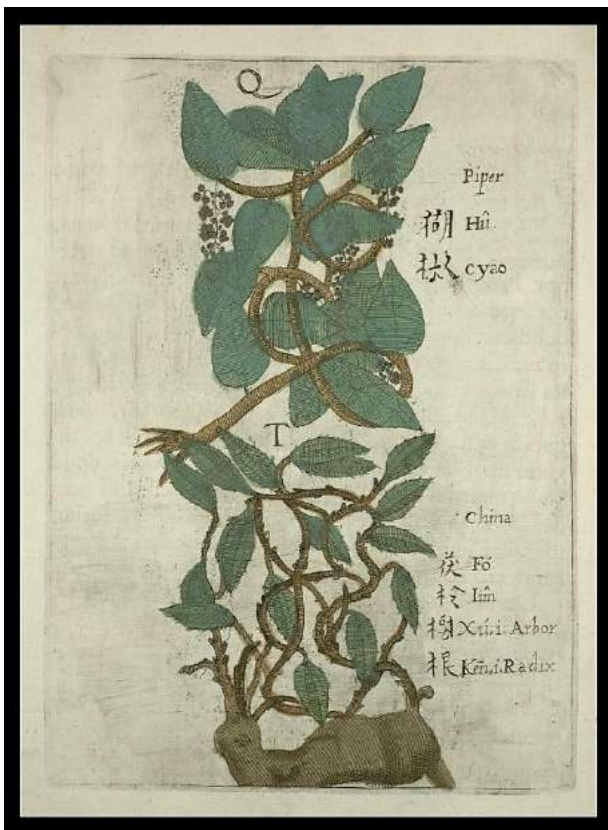 Q
Piper
猢 Hû.
椒 Cyao
T
China
茯 Fó
柃 lim
樹 Xú.i. Arbor
根 Ken.i. Radix